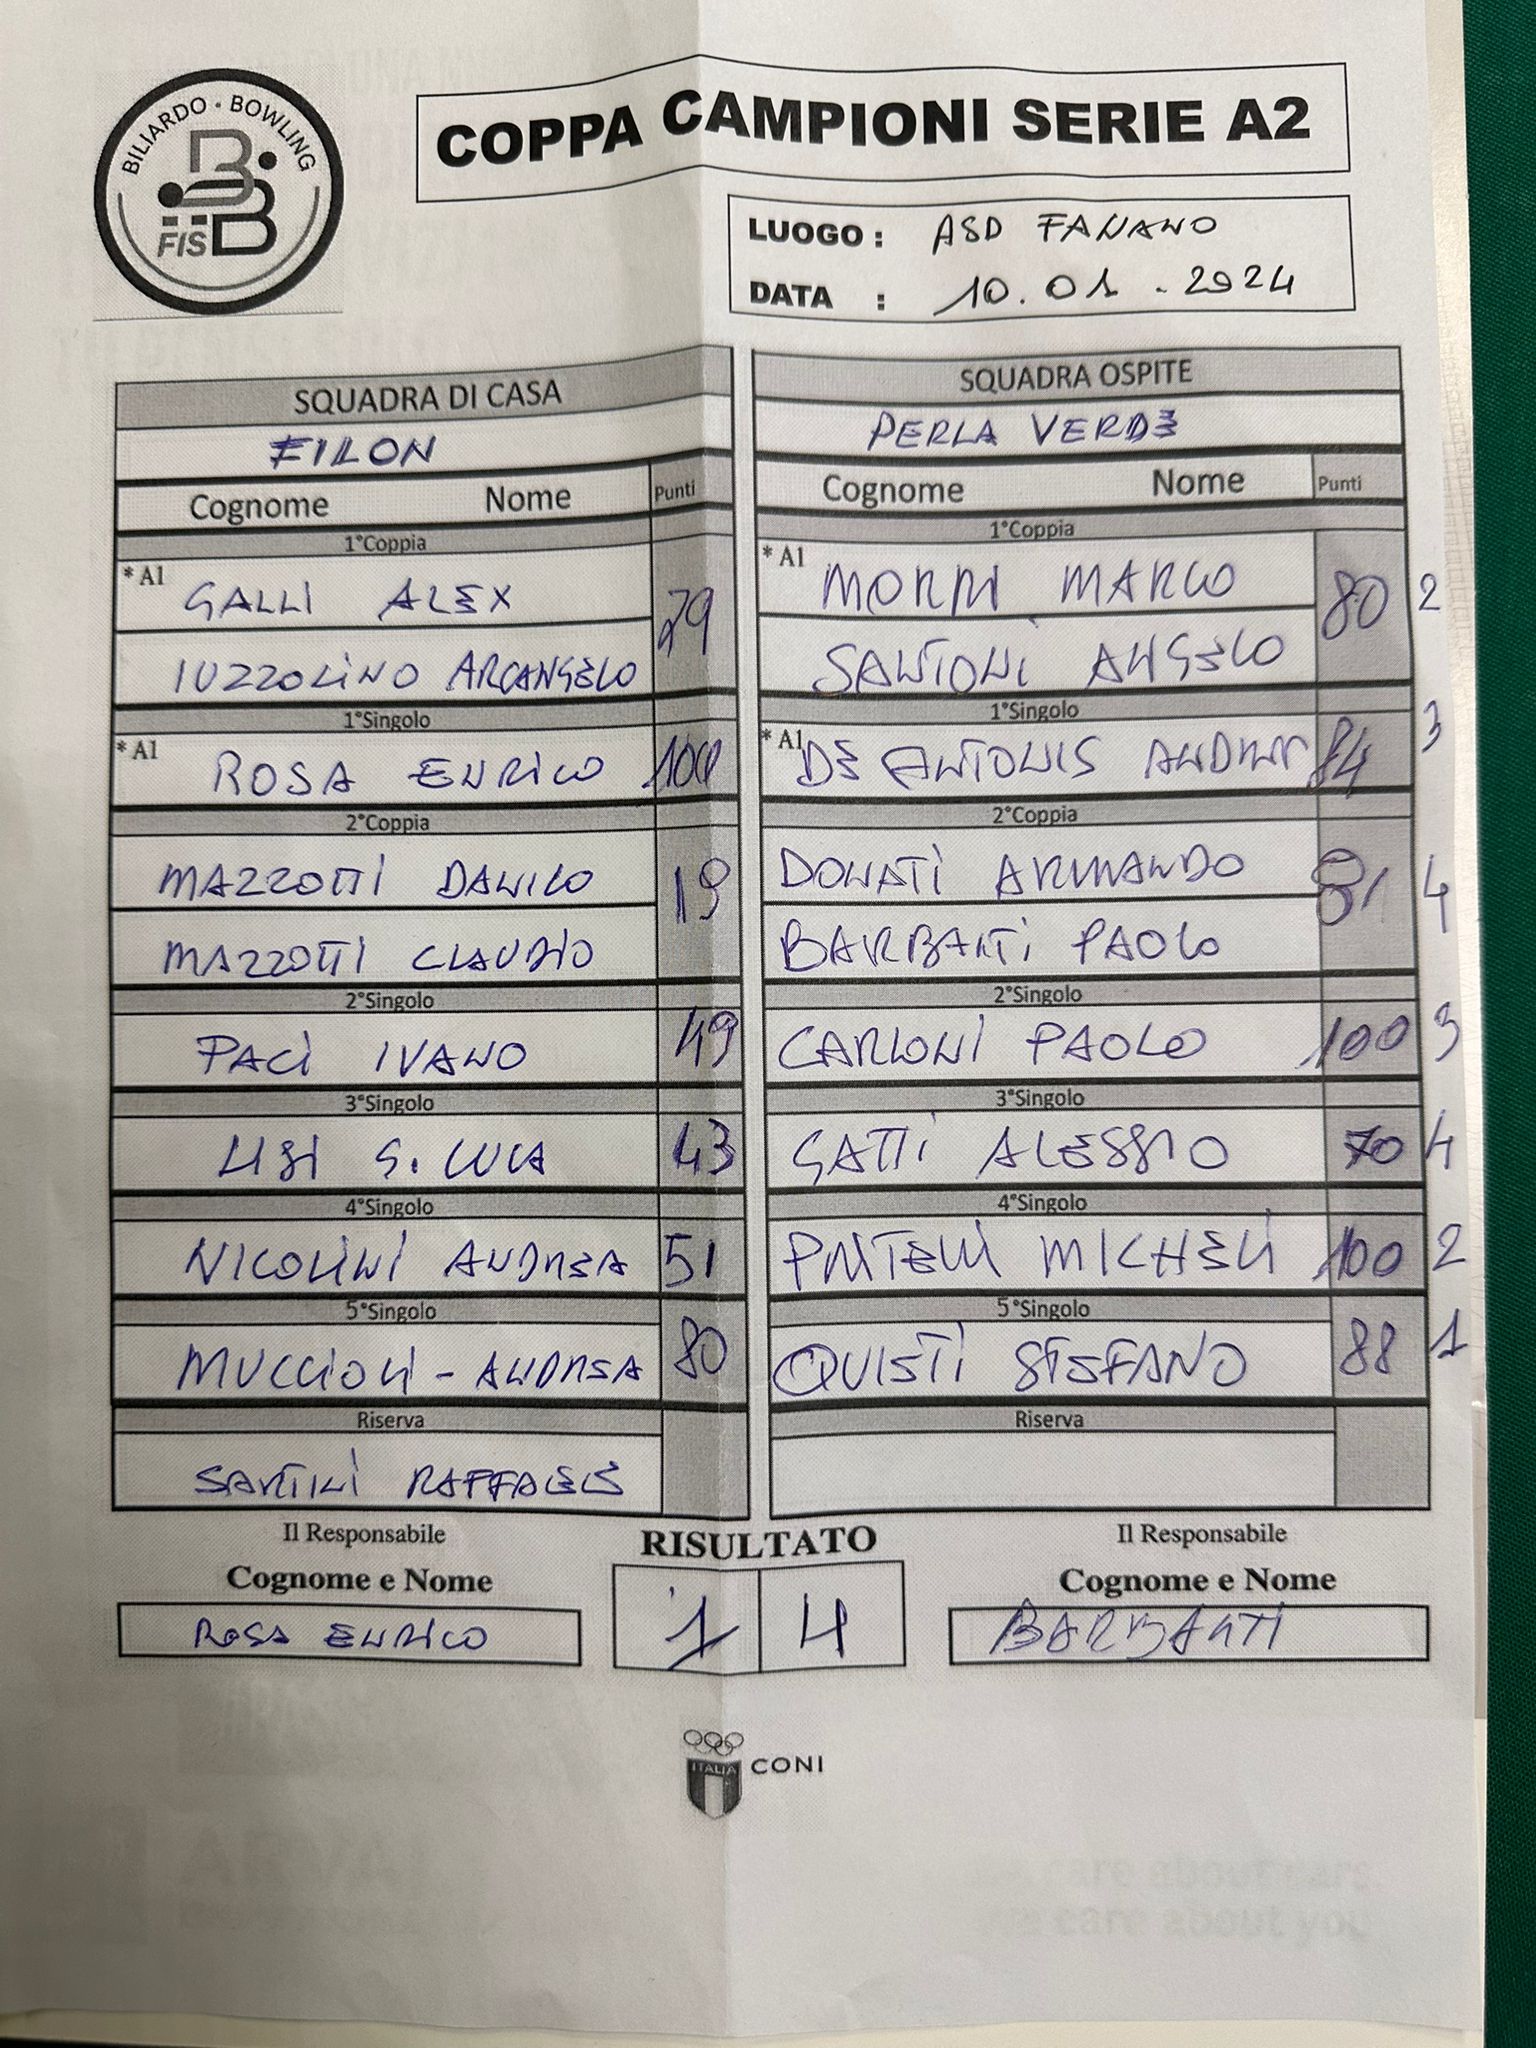 BILIARDO • BOWLING
FISBB
COPPA CAMPIONI SERIE A2
LUOGO : ASD FANANO
DATA : 10.01.2024
SQUADRA DI CASA
FILON
Cognome Nome Punti
1°Coppia
* A1 GALLI ALEX 79
IUZZOLINO ARCANGELO
1°Singolo
* A1 ROSA ENRICO 100
2°Coppia
MAZZOTTI DANILO 19
MAZZOTTI CLAUDIO
2°Singolo
PACI IVANO 49
3°Singolo
LISI G. LUCA 43
4°Singolo
NICOLINI ANDREA 51
5°Singolo
MUCCIOLI - ANDREA 80
Riserva
SANTINI RAFFAELE
Il Responsabile
Cognome e Nome
ROSA ENRICO
SQUADRA OSPITE
PERLA VERDE
Cognome Nome Punti
1°Coppia
* A1 MORRI MARCO 80 2
SANTONI ANGELO
1°Singolo
* A1 DE ANTONIS 84 3
2°Coppia
DONATI ARMANDO 81 4
BARBANTI PAOLO
2°Singolo
CARLONI PAOLO 100 3
3°Singolo
GATTI ALESSIO 70 4
4°Singolo
MICHELI 100 2
5°Singolo
QUISTI STEFANO 88 1
Riserva
Il Responsabile
Cognome e Nome
BARBANTI
RISULTATO
1 4
ITALIA
CONI
care about cars
we care about you